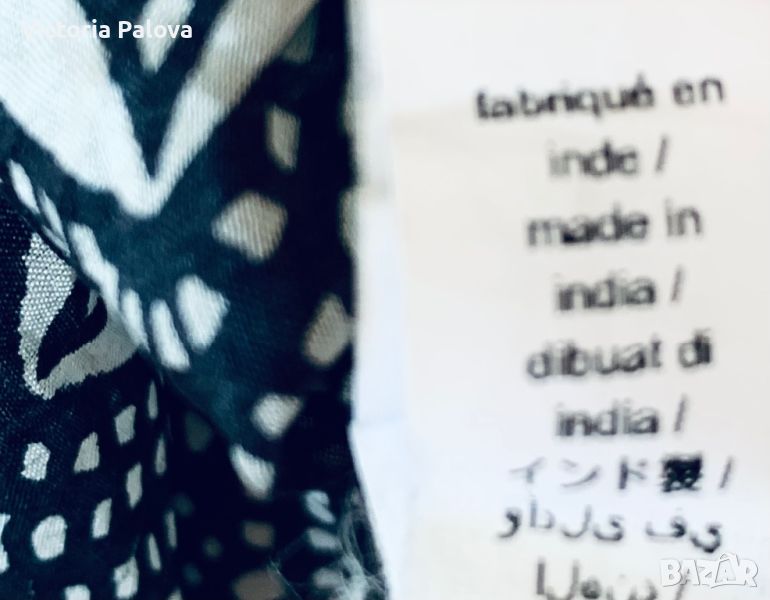 Victoria Palova
fabriqué en
inde /
made in
india /
dibuat di
india /
インド製 /
BAZAR